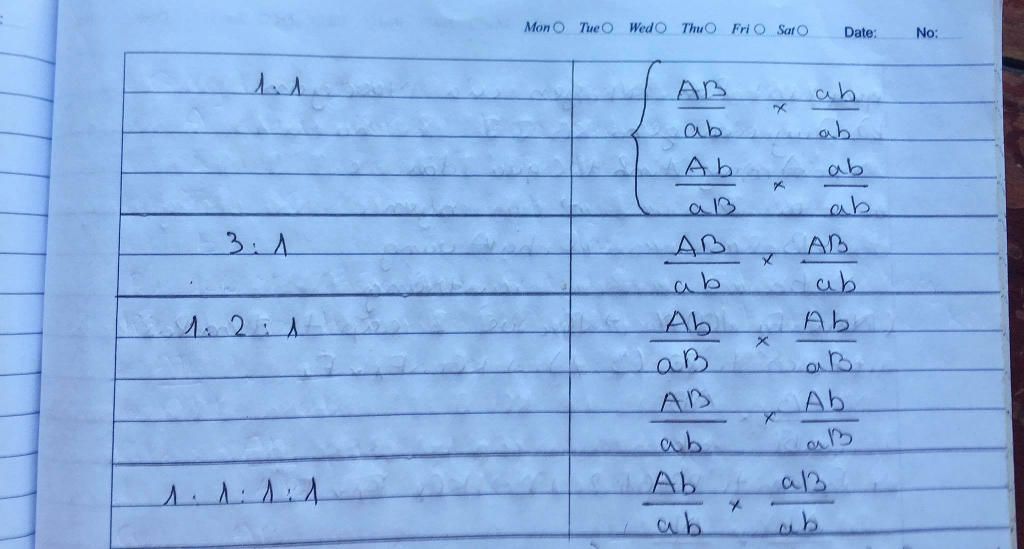 Mon Tue Wed Thu Fri Sat Date: No:
1:1
AB/ab × ab/ab
Ab/aB × ab/ab
3:1
AB/ab × AB/ab
1:2:1
Ab/aB × Ab/aB
AB/ab × Ab/aB
1:1:1:1
Ab/ab × aB/ab